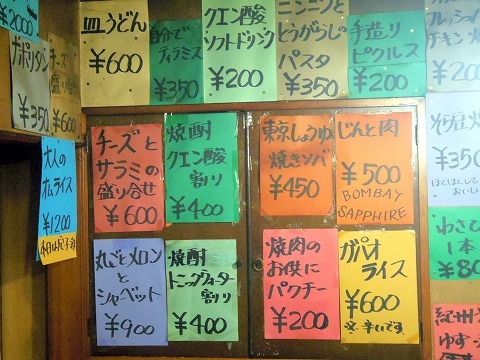 ¥2000
ナポリタン
¥350
チーズ
盛り合せ
¥600
皿うどん
¥600
自分で
ティラミス
¥350
クエン酸
ソフトドリンク
¥200
ニンニクと
とうがらしの
パスタ
¥350
手造り
ピクルス
¥200
フレッシュ
チキン
¥200
大人の
オムライス
¥1200
チーズと
サラミの
盛り合せ
¥600
焼酎
クエン酸
割り
¥400
東京しょうゆ
焼きソバ
¥450
じんと肉
¥500
BOMBAY
SAPPHIRE
そら豆
¥350
ほくほくとして
おいしい
丸ごとメロン
と
シャーベット
¥900
焼酎
トニックウォーター
割り
¥400
焼肉の
お供に
パクチー
¥200
ガパオ
ライス
¥600
辛いです
わさび
1本
¥80
紀州
ゆず